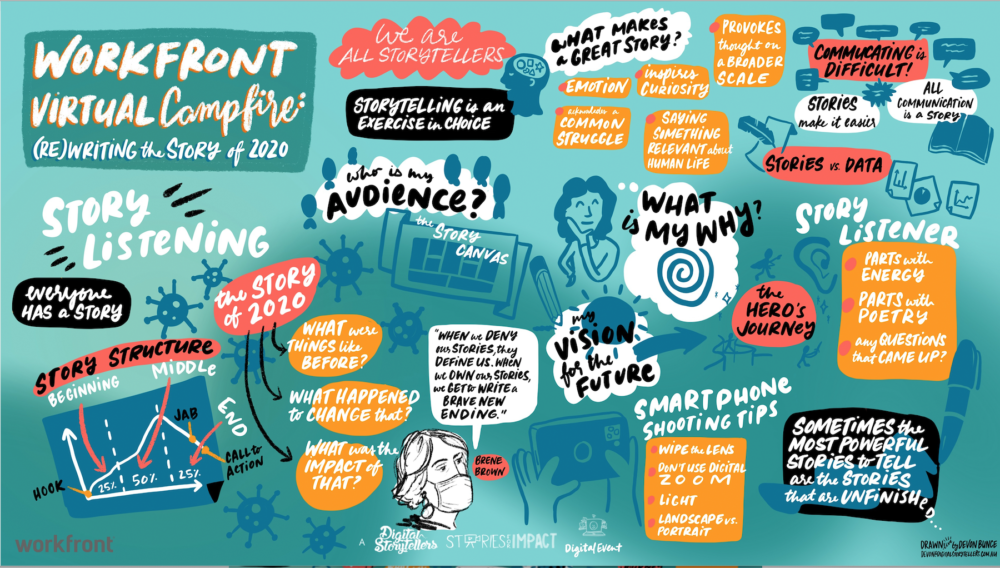 WORKFRONT
VIRTUAL Campfire:
(RE)WRITING the STORY of 2020
We are
ALL STORYTELLERS
STORYTELLING is an
EXERCISE in CHOICE
WHAT MAKES
a GREAT STORY?
EMOTION
inspires
CURIOSITY
acknowledges a
COMMON
STRUGGLE
SAYING
SOMETHING
RELEVANT about
HUMAN LIFE
PROVOKES
thought on
a BROADER
SCALE
COMMUCATING is
DIFFICULT!
STORIES
make it easier
ALL
COMMUNICATION
is a STORY
STORIES vs. DATA
STORY
LISTENING
everyone
HAS a STORY
who is my
AUDIENCE?
the STORY
CANVAS
WHAT
is MY WHY?
STORY
LISTENER
PARTS with
ENERGY
PARTS with
POETRY
any QUESTIONS
that CAME UP?
the STORY
of 2020
WHAT were
THINGS like
BEFORE?
WHAT HAPPENED
to CHANGE that?
WHAT was the
IMPACT of
THAT?
STORY STRUCTURE
BEGINNING
MIDDLE
END
JAB
CALL to
ACTION
HOOK
25%
50%
25%
"WHEN we DENY
our STORIES, they
DEFINE US. WHEN
we OWN our STORIES,
we GET to WRITE a
BRAVE NEW
ENDING."
BRENE
BROWN
my
VISION
for the
FUTURE
the
HERO'S
JOURNEY
SMARTPHONE
SHOOTING TIPS
WIPE the LENS
DON'T USE DIGITAL
ZOOM
LIGHT
LANDSCAPE vs.
PORTRAIT
SOMETIMES the
MOST POWERFUL
STORIES to TELL
are the STORIES
that are UNFINISHED...
workfront
A
Digital
Storytellers
STORIES FOR IMPACT
Digital Event
DRAWN live by DEVON BUNCE